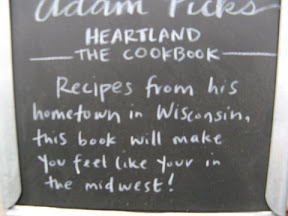 Adam Picks
HEARTLAND
THE COOKBOOK
Recipes from his
hometown in Wisconsin,
this book will make
you feel like your in
the midwest!